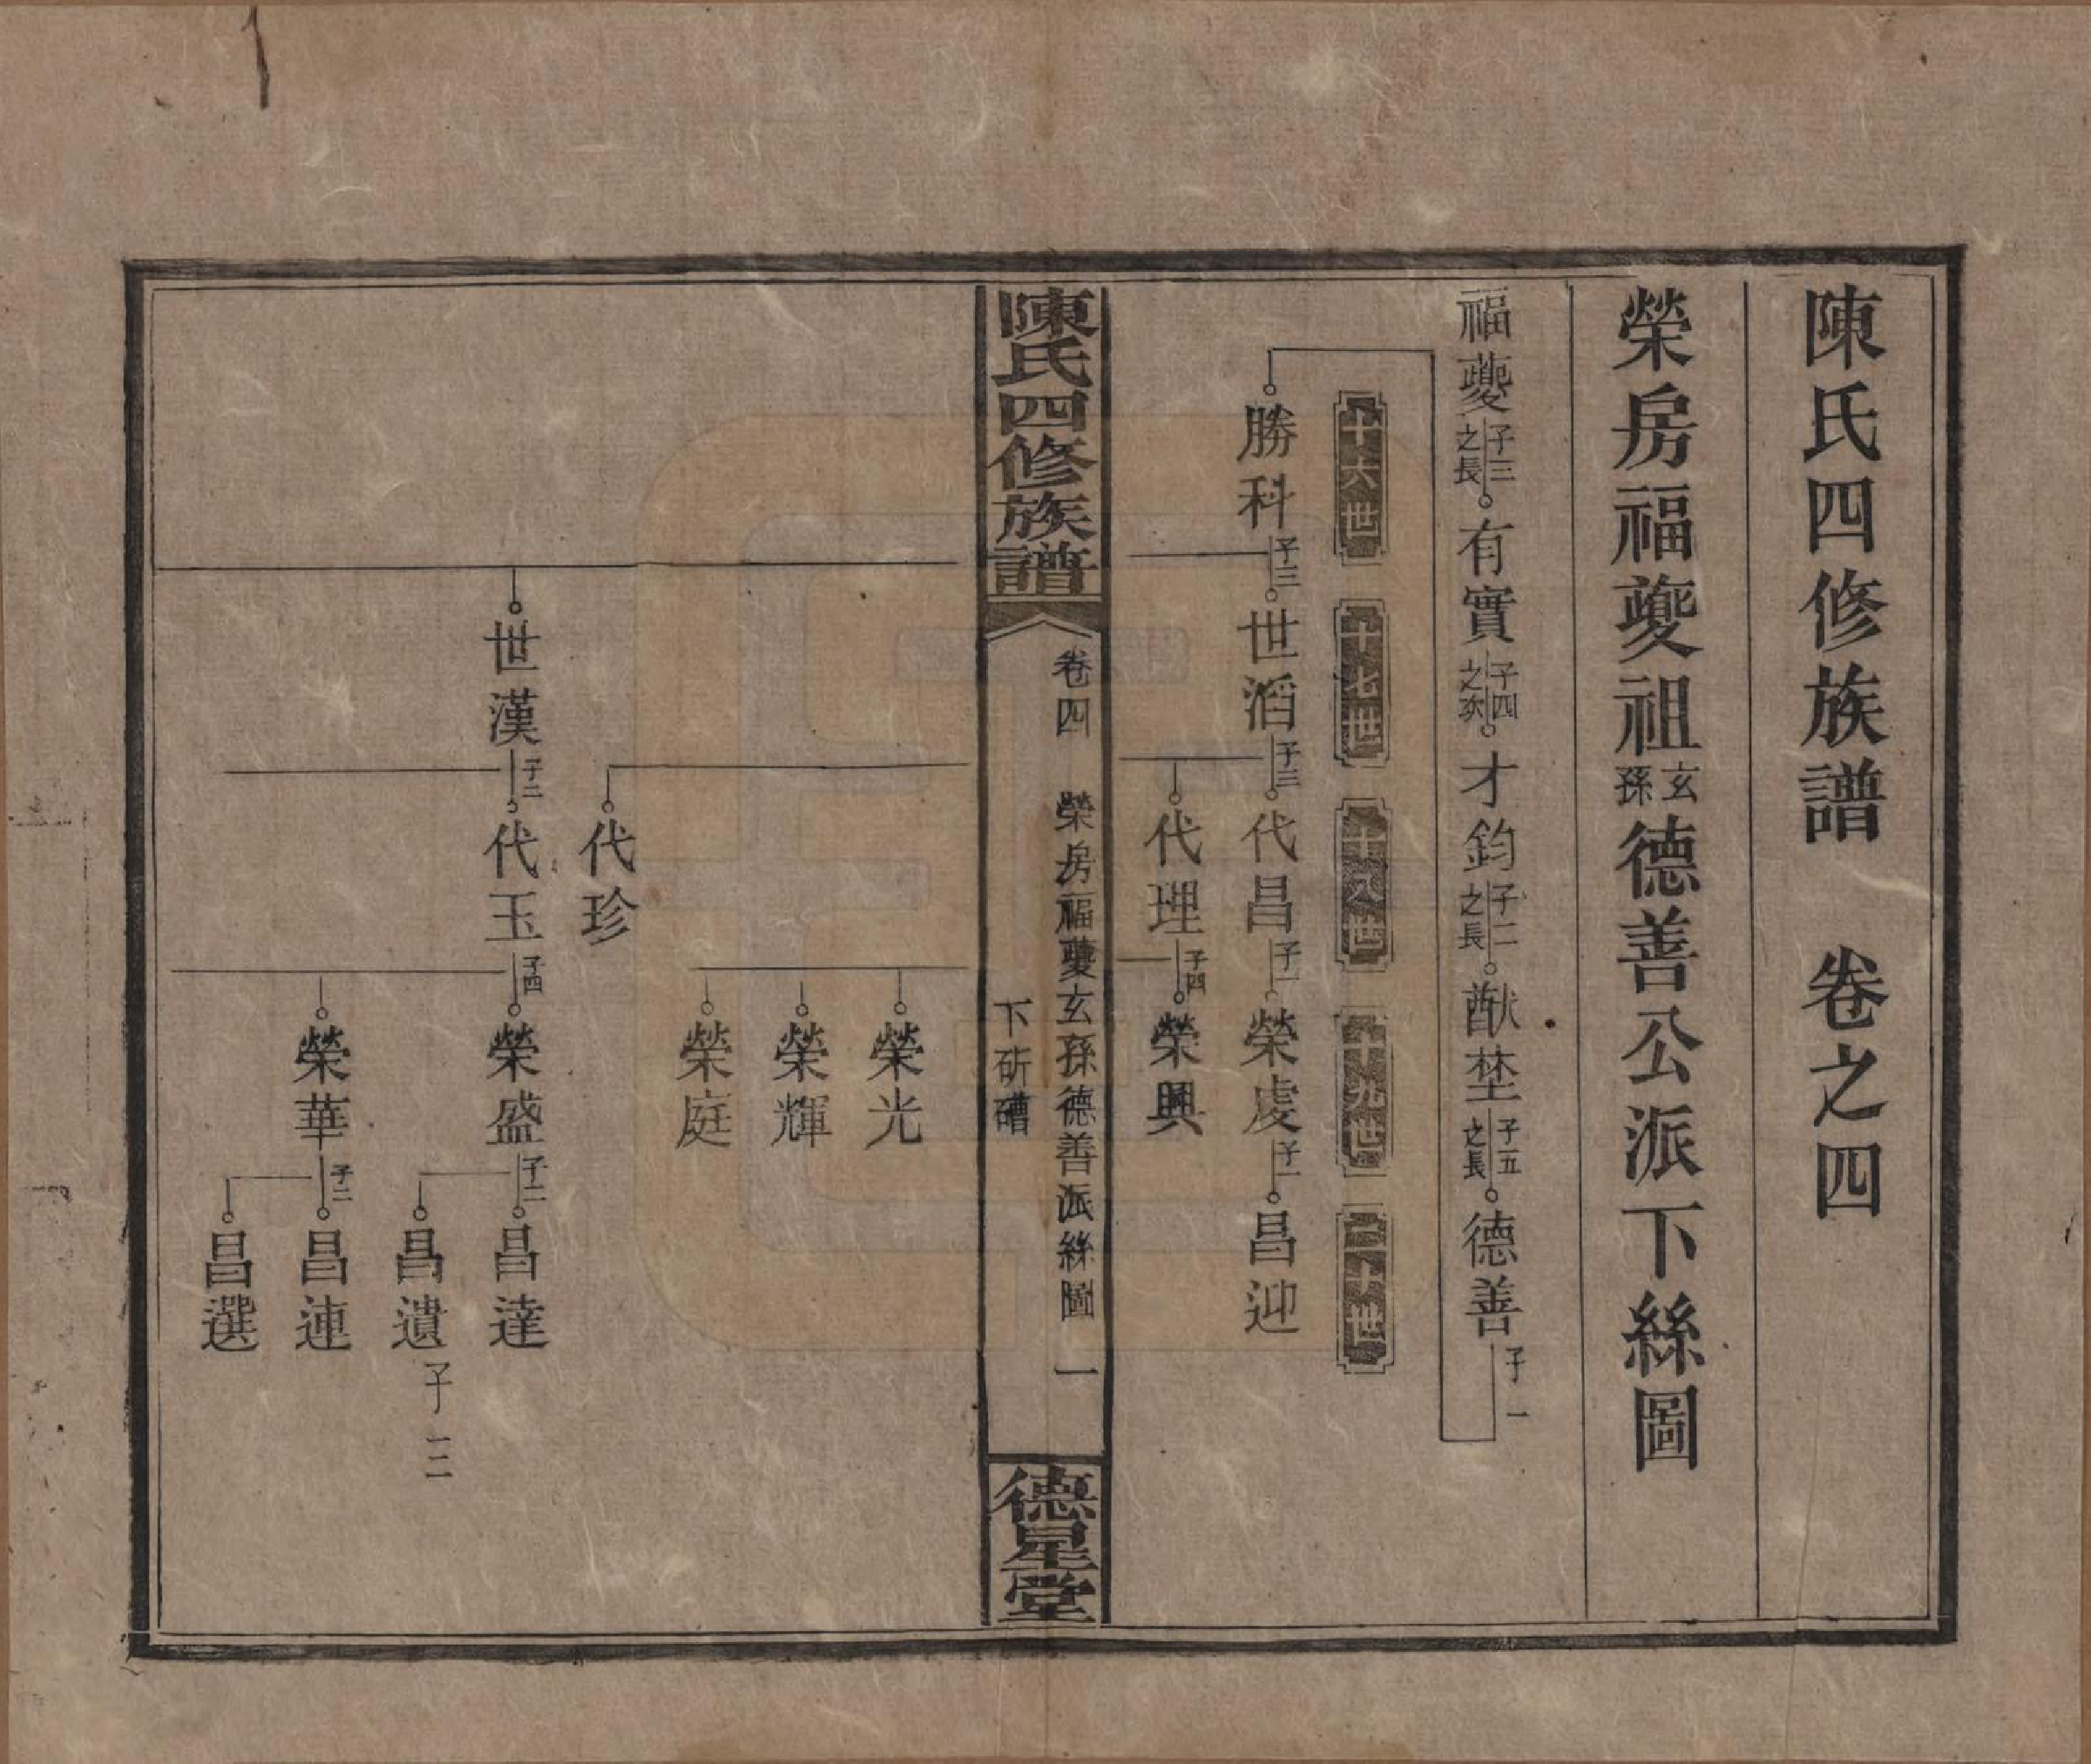 陳氏四修族譜　卷之四
榮房福夔祖玄孫德善公派下絲圖
福夔子三之長有實子四之次才鈞子二之長猷埜子五之長德善子一
十六世　十七世　十八世　十九世　二十世
勝科子三世滔子三代昌子一榮虔子一昌迎
代理子四榮興
陳氏四修族譜　卷四　榮房福夔玄孫德善派絲圖　一　德星堂
下斫磳
榮光
榮輝
榮庭
代珍
世漢子二代玉子四榮盛子二昌達
昌遺子一二
榮華子二昌連
昌選